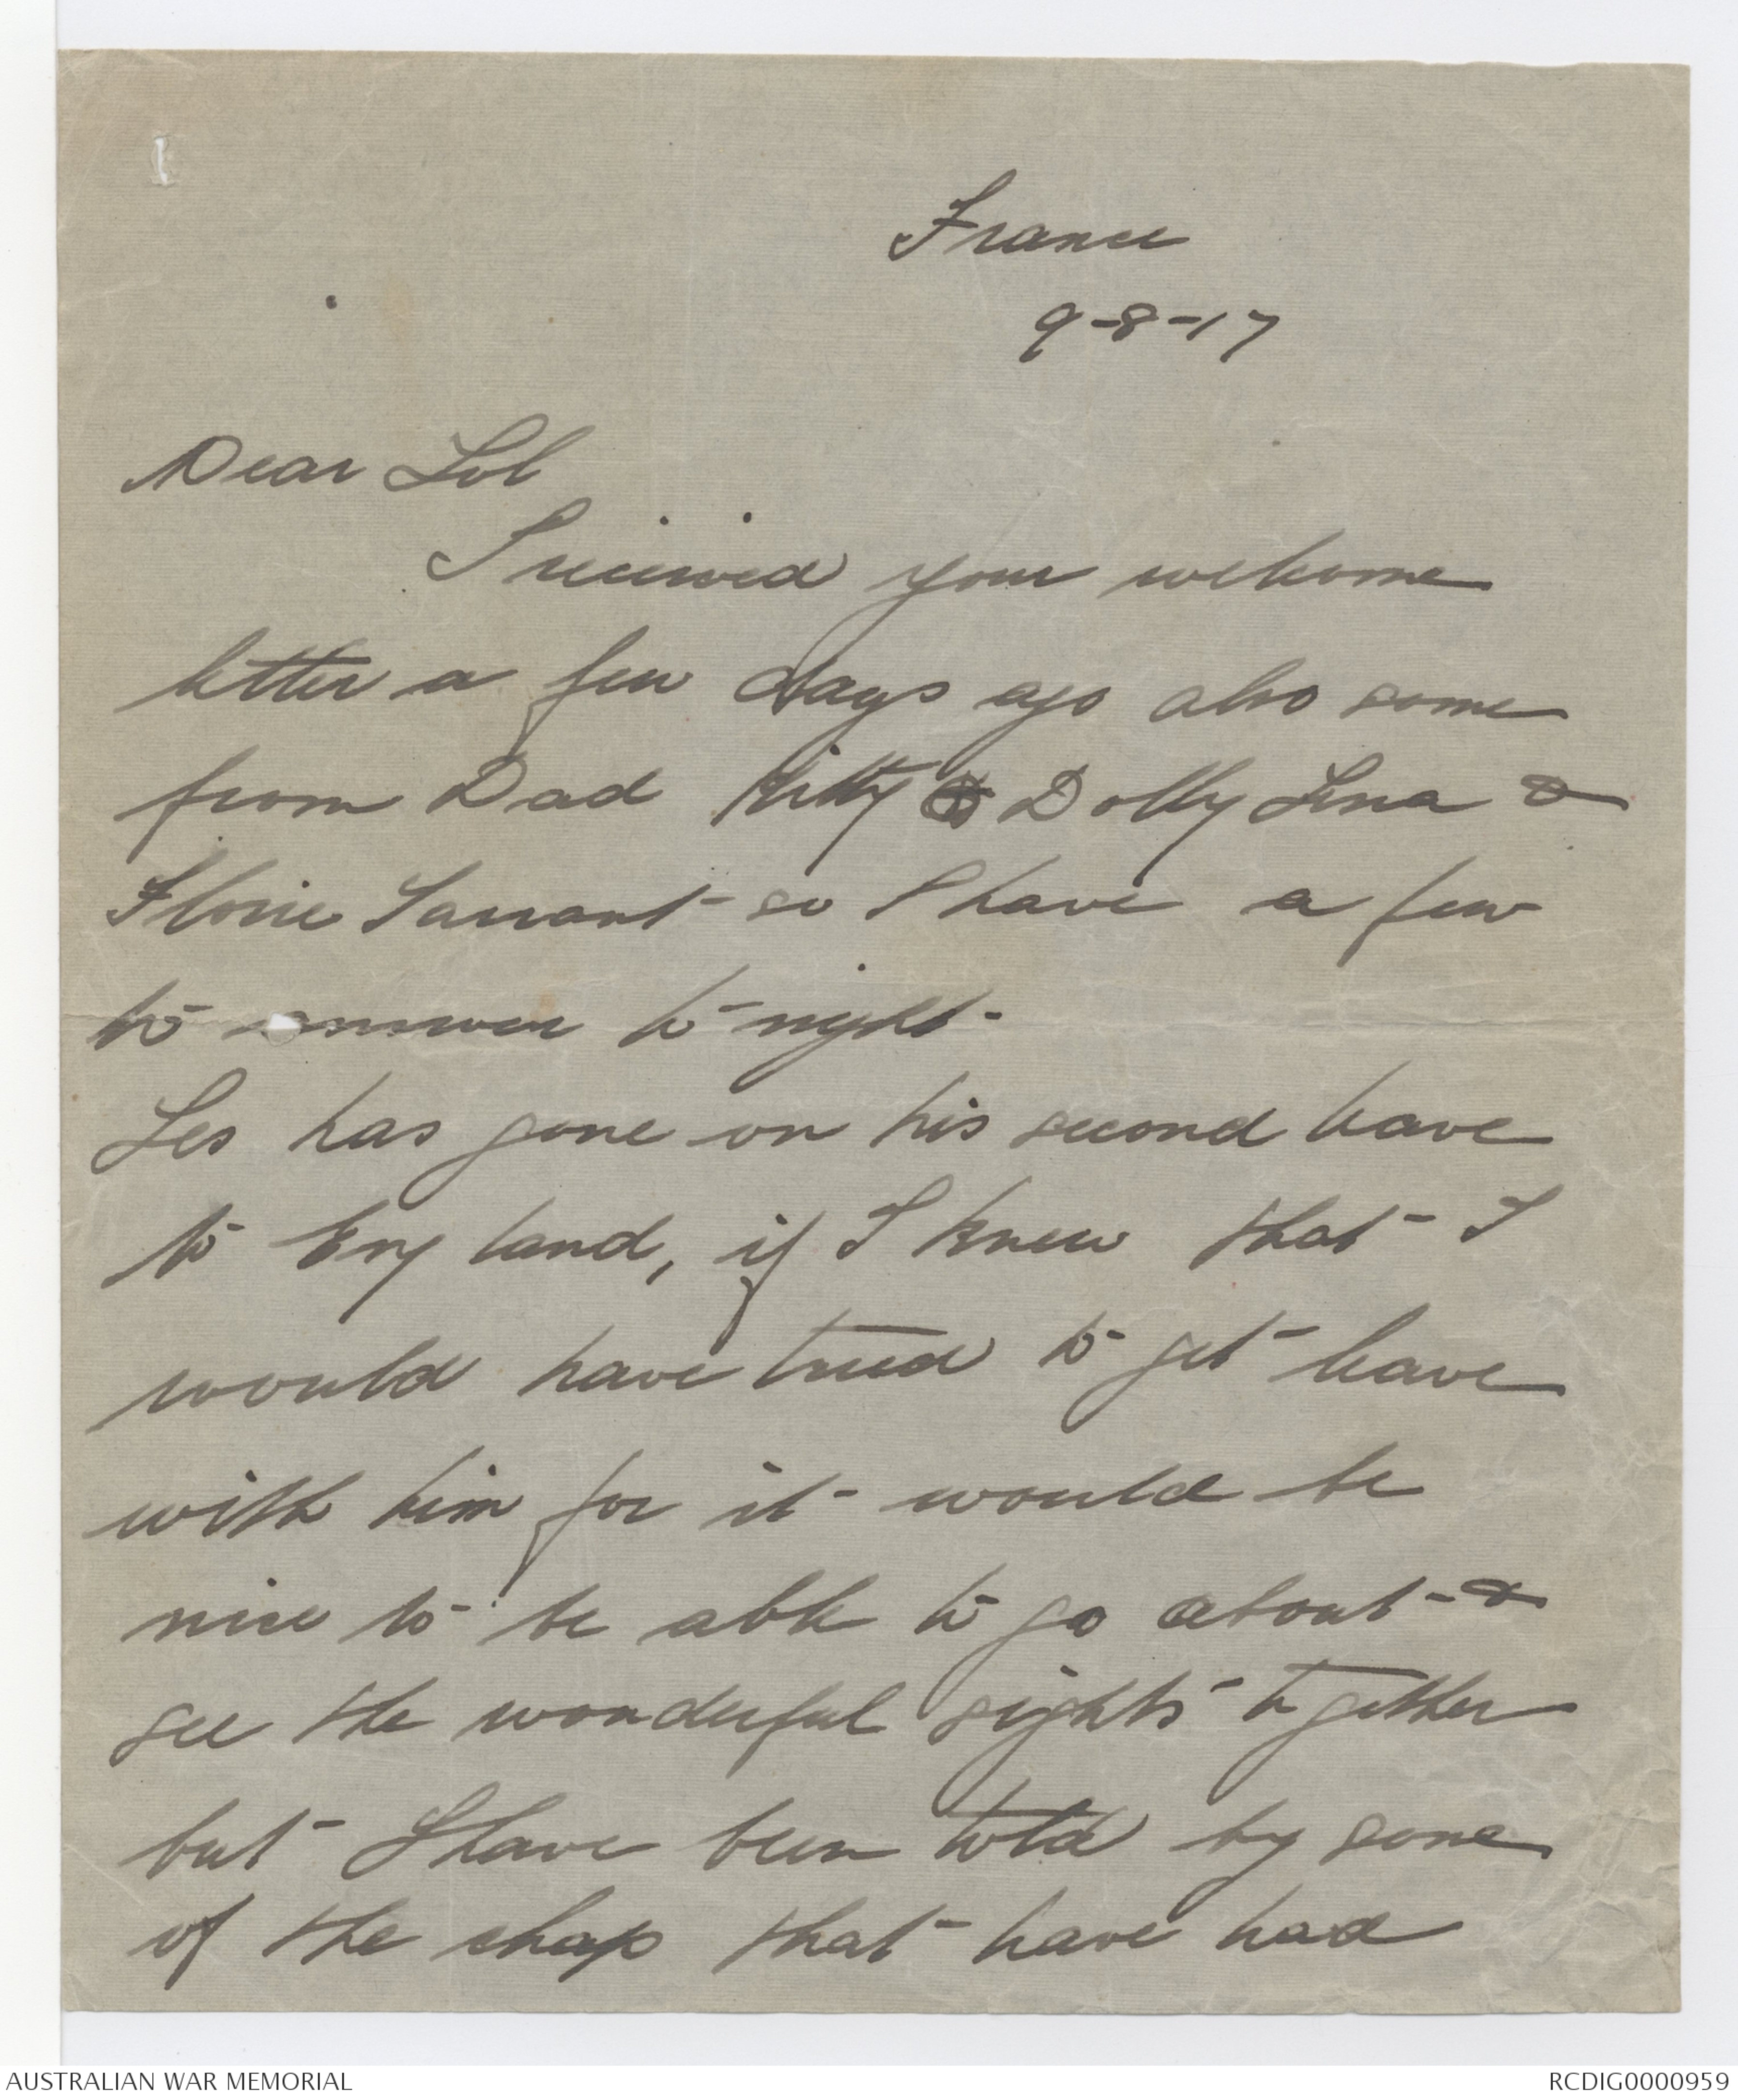 France
9-8-17
Dear Lol
I received your welcome
letter a few days ago also some
from Dad Kitty & Dolly Lena &
Florie Tarrant so I have a few
to answer to night.
Les has gone on his second leave
to Eng land, if I knew that I
would have tried to get leave
with him for it would be
nice to be able to go about &
see the wonderful sights together
but I have been told by some
of the chap that have had
AUSTRALIAN WAR MEMORIAL
RCDIG0000959